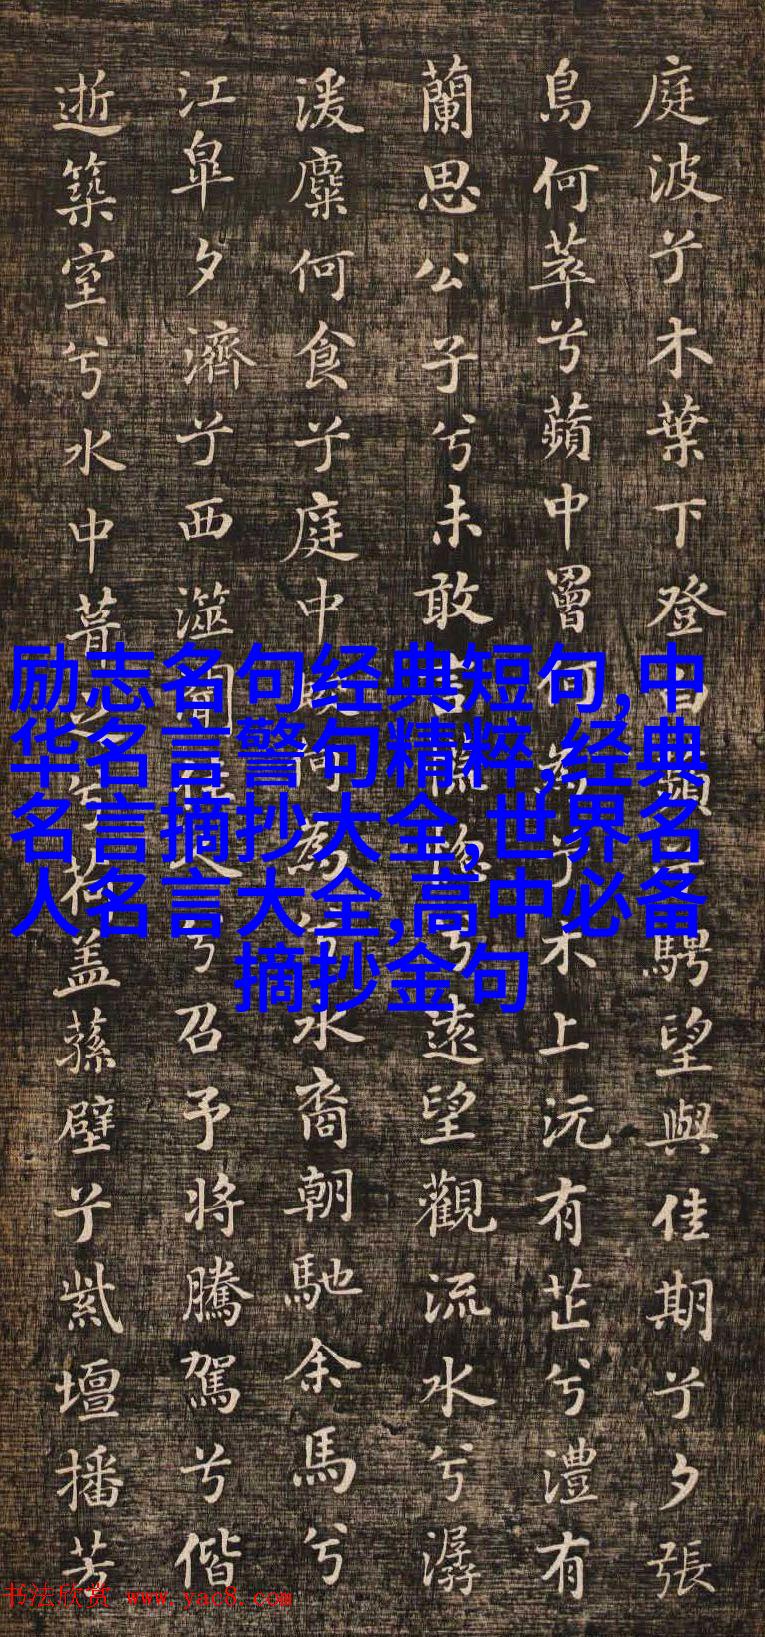 庭波兮木葉下登白蘋兮騁望與佳期兮夕張
鳥何萃兮蘋中罾何為兮木上沅有芷兮澧有
蘭思公子兮未敢言兮遠望觀流水兮潺
湲麋何食兮庭中何為水裔朝馳余馬兮
江皋夕濟兮西澨聞佳人兮召予將騰駕兮偕
逝築室兮水中葺之兮荷蓋蓀壁兮紫壇播芳
励志名句经典短句,中
华名言警句精粹,经典
名言摘抄大全,世界名
人名言大全,高中必备
摘抄金句
书法欣赏 www.yac8.com